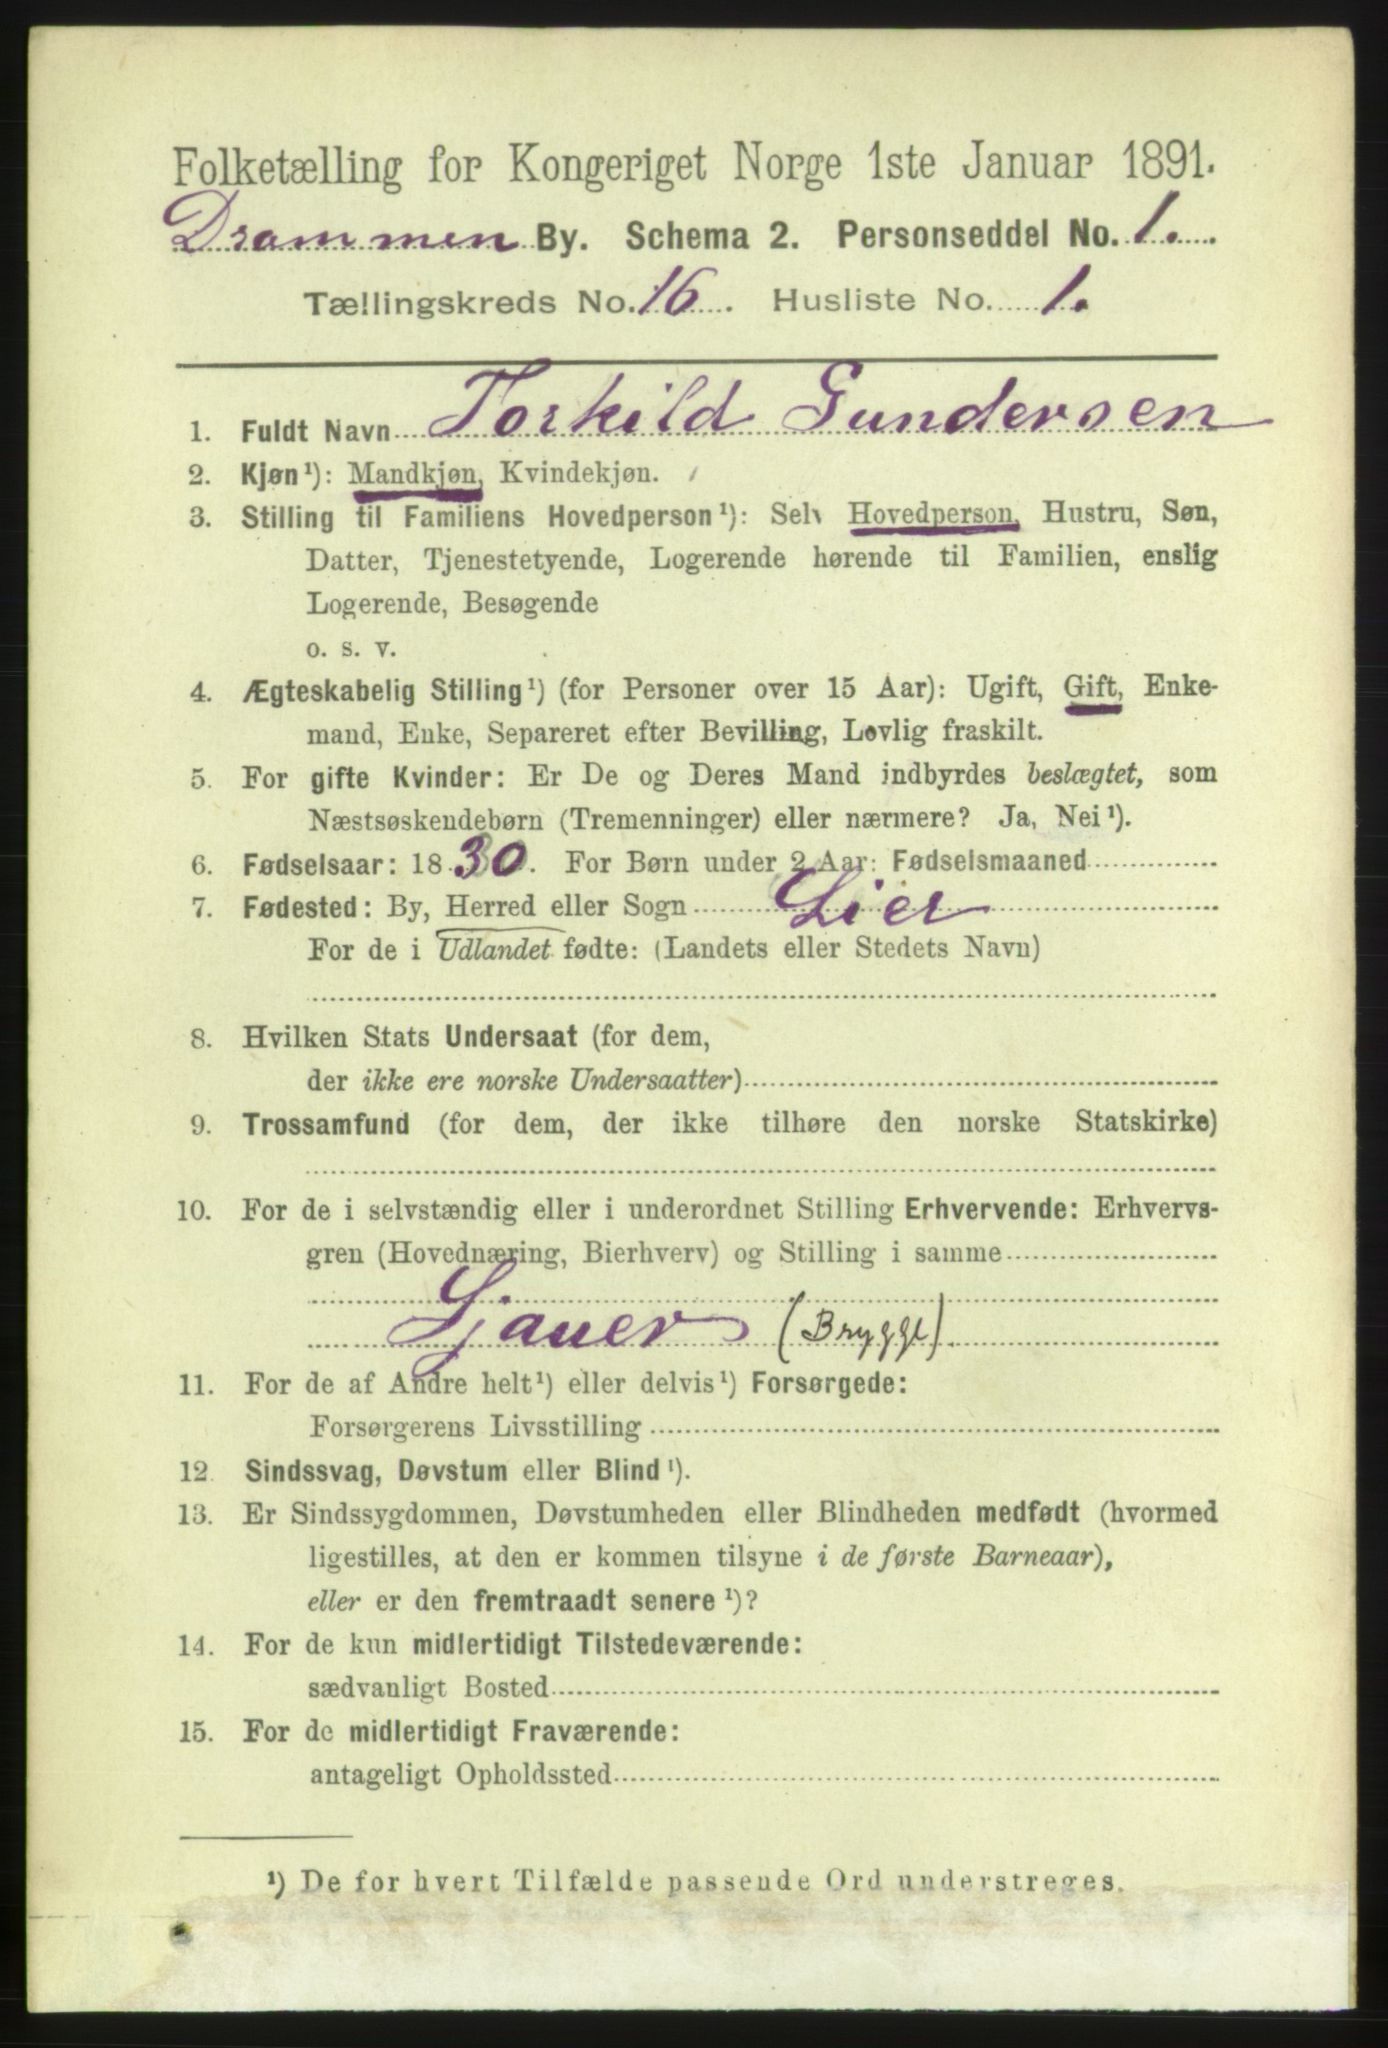 Folketælling for Kongeriget Norge 1ste Januar 1891.
Drammen By. Schema 2. Personseddel No. 1.
Tællingskreds No. 16. Husliste No. 1.
1. Fuldt Navn Torkild Gundersen
2. Kjøn¹): Mandkjøn, Kvindekjøn.
3. Stilling til Familiens Hovedperson¹): Selv Hovedperson, Hustru, Søn,
Datter, Tjenestetyende, Logerende hørende til Familien, enslig
Logerende, Besøgende
o. s. v.
4. Ægteskabelig Stilling¹) (for Personer over 15 Aar): Ugift, Gift, Enke-
mand, Enke, Separeret efter Bevilling, Lovlig fraskilt.
5. For gifte Kvinder: Er De og Deres Mand indbyrdes beslægtet, som
Næstsøskendebørn (Tremenninger) eller nærmere? Ja, Nei¹).
6. Fødselsaar: 1830. For Børn under 2 Aar: Fødselsmaaned
7. Fødested: By, Herred eller Sogn Lier
For de i Udlandet fødte: (Landets eller Stedets Navn)
8. Hvilken Stats Undersaat (for dem,
der ikke ere norske Undersaatter)
9. Trossamfund (for dem, der ikke tilhøre den norske Statskirke)
10. For de i selvstændig eller i underordnet Stilling Erhvervende: Erhvervs-
gren (Hovednæring, Bierhverv) og Stilling i samme
Sjauer (Brygge).
11. For de af Andre helt¹) eller delvis¹) Forsørgede:
Forsørgerens Livsstilling
12. Sindssvag, Døvstum eller Blind¹).
13. Er Sindssygdommen, Døvstumheden eller Blindheden medfødt (hvormed
ligestilles, at den er kommen tilsyne i de første Barneaar),
eller er den fremtraadt senere¹)?
14. For de kun midlertidigt Tilstedeværende:
sædvanligt Bosted
15. For de midlertidigt Fraværende:
antageligt Opholdssted
¹) De for hvert Tilfælde passende Ord understreges.